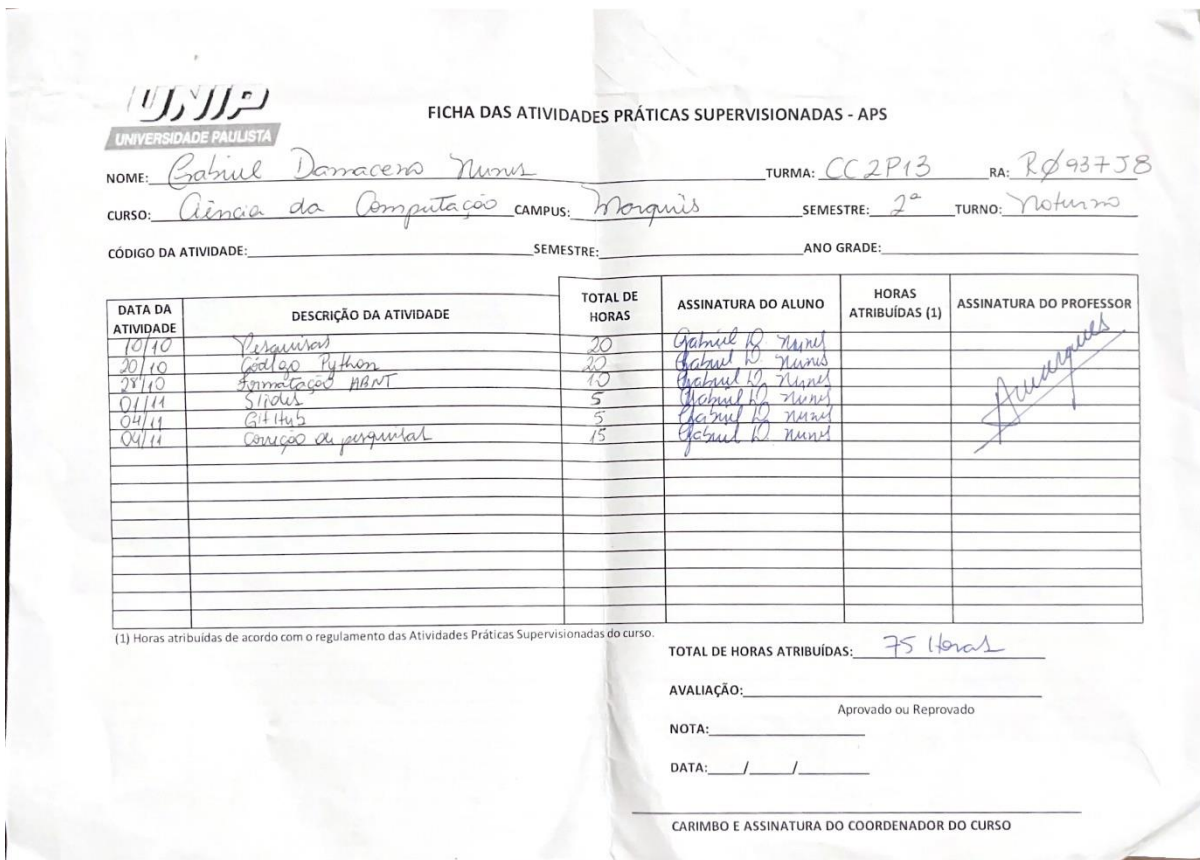 UNIP
UNIVERSIDADE PAULISTA
FICHA DAS ATIVIDADES PRÁTICAS SUPERVISIONADAS - APS
NOME: Gabriel Damaceno Nunes TURMA: CC2P13 RA: RØ937J8
CURSO: Ciência da Computação CAMPUS: Marquês SEMESTRE: 2º TURNO: Noturno
CÓDIGO DA ATIVIDADE: SEMESTRE: ANO GRADE:
DATA DA ATIVIDADE DESCRIÇÃO DA ATIVIDADE TOTAL DE HORAS ASSINATURA DO ALUNO HORAS ATRIBUÍDAS (1) ASSINATURA DO PROFESSOR
10/10 Pesquisas 20 Gabriel D. Nunes
20/10 Código Python 20 Gabriel D. Nunes
28/10 Formatação ABNT 10 Gabriel D. Nunes
01/11 Slides 5 Gabriel D. Nunes
04/11 GitHub 5 Gabriel D. Nunes
04/11 Correção de pesquisas 15 Gabriel D. Nunes
(1) Horas atribuídas de acordo com o regulamento das Atividades Práticas Supervisionadas do curso.
TOTAL DE HORAS ATRIBUÍDAS: 75 Horas
AVALIAÇÃO:
Aprovado ou Reprovado
NOTA:
DATA: / /
CARIMBO E ASSINATURA DO COORDENADOR DO CURSO